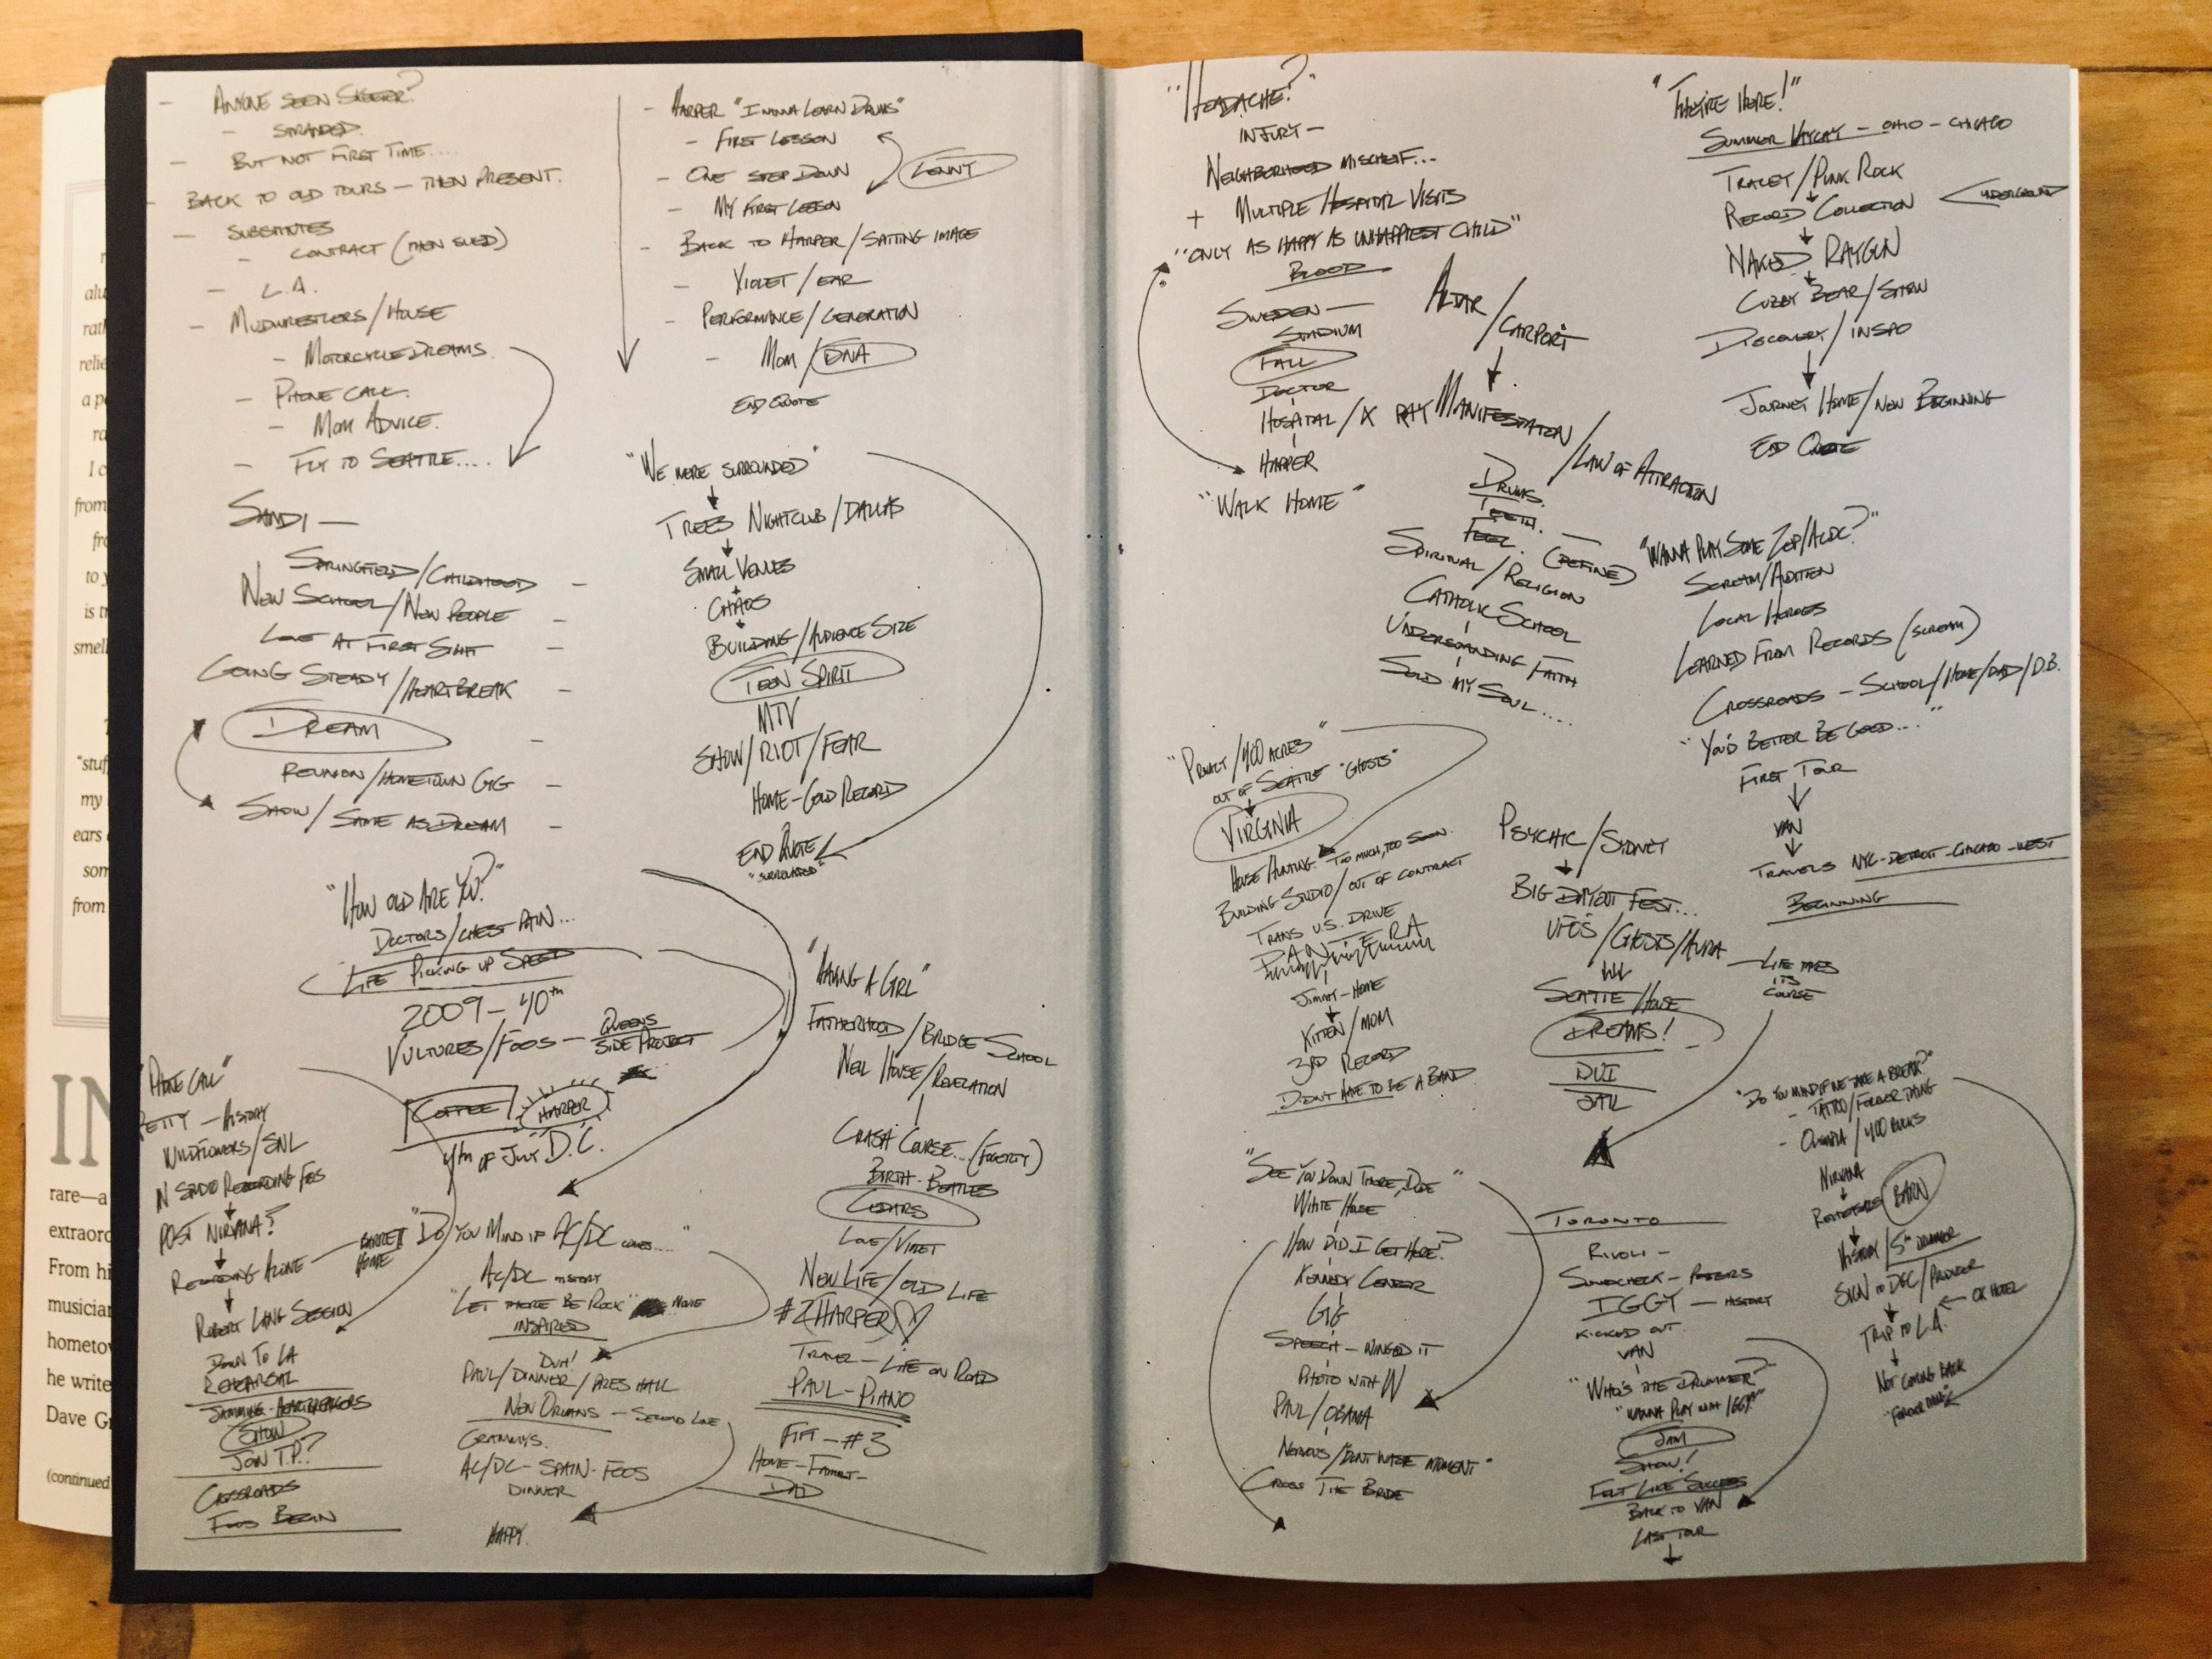 - ANYONE SEEN SKEETER?
- STRANDED.
- BUT NOT FIRST TIME....
- BACK TO OLD TOURS - THEN PRESENT.
- SUBSTITUTES
- CONTRACT (THEN SUED)
- L.A.
- MUDWRESTLERS/HOUSE
- MOTORCYCLE DREAMS
- PHONE CALL.
- MOM ADVICE.
- FLY TO SEATTLE....
SANDI -
SPRINGFIELD/CHILDHOOD -
NEW SCHOOL/NEW PEOPLE -
LOVE AT FIRST SIGHT -
GOING STEADY/HEARTBREAK -
DREAM -
REUNION/HOMETOWN GIG -
SHOW/SAME AS DREAM -
"HOW OLD ARE YOU?"
DOCTORS/CHEST PAIN...
LIFE PICKING UP SPEED
2009 - 40TH
VULTURES/FOOS - QUEENS
SIDE PROJECT
COFFEE/HARPER
4TH OF JULY D.C.
"PHONE CALL"
PETTY - HISTORY
WILDFLOWERS/SNL
IN STUDIO RECORDING FOOS
POST NIRVANA?
RECORDING ALONE - BARRETT
HOME
ROBERT LANG SESSION
DOWN TO LA
REHEARSAL
JAMMING - HEARTBREAKERS
SHOW
JOIN T.P.?
CROSSROADS
FOOS BEGIN
- HARPER "I WANNA LEARN DRUMS"
- FIRST LESSON
- ONE STEP DOWN
LENNY
- MY FIRST LESSON
- BACK TO HARPER/SPITTING IMAGE
- VIOLET/EAR
- PERFORMANCE/GENERATION
- MOM/DNA
END QUOTE
"WE WERE SURROUNDED"
TREES NIGHTCLUB/DALLAS
SMALL VENUES
CHAOS
BUILDING/AUDIENCE SIZE
TEEN SPIRIT
MTV
SHOW/RIOT/FEAR
HOME - GOLD RECORD
END QUOTE
"SURROUNDED"
"DO YOU MIND IF AC/DC COMES...."
AC/DC HISTORY
"LET THERE BE ROCK" MOVIE
INSPIRED
DUH!
PAUL/DINNER/PRES HALL
NEW ORLEANS - SECOND LINE
GRAMMYS.
AC/DC - SPAIN - FOOS
DINNER
HAPPY.
"HAVING A GIRL"
FATHERHOOD/BRIDGE SCHOOL
NEIL HOUSE/REVELATION
CRASH COURSE... (FOGERTY)
BIRTH - BEATLES
CIGARS
LOVE/VIOLET
NEW LIFE/OLD LIFE
#2 (HARPER)
TRAVEL - LIFE ON ROAD
PAUL - PIANO
- #3
HOME - FAMILY -
DAD
"HEADACHE?"
INJURY -
NEIGHBORHOOD MISCHEIF...
+ MULTIPLE HOSPITAL VISITS
"ONLY AS HAPPY AS UNHAPPIEST CHILD"
BLOOD
SWEDEN -
STADIUM
FALL
DOCTOR
HOSPITAL/X RAY
HARPER
"WALK HOME"
ALTAR/CARPORT
MANIFESTATION/LAW OF ATTRACTION
DRUMS.
TEETH.
FEEL. - (DEFINED)
SPIRITUAL/RELIGION
CATHOLIC SCHOOL
UNDERSTANDING FAITH
SOLD MY SOUL....
"THEY'RE HERE!"
SUMMER VAYCAY - OHIO - CHICAGO
TRACEY/PUNK ROCK
RECORD COLLECTION
UNDERGROUND
NAKED RAYGUN
CUBBY BEAR/SHOW
DISCOVERY/INSPO
JOURNEY HOME/NEW BEGINNING
END QUOTE
"WANNA PLAY SOME ZEP/ACDC?"
SCREAM/AUDITION
LOCAL HEROES
LEARNED FROM RECORDS (SCREAM)
CROSSROADS - SCHOOL/HOME/DAD/D.B.
"YOU'D BETTER BE GOOD..."
FIRST TOUR
VAN
TRAVELS NYC - DETROIT - CHICAGO - WEST
BEGINNING
"PRIVACY/400 ACRES"
OUT OF SEATTLE "GHOSTS"
VIRGINIA
HOUSE HUNTING. TOO MUCH, TOO SOON.
BUILDING STUDIO/OUT OF CONTRACT
TRANS U.S. DRIVE
PANTERA
JIMMY - HOME
KITTEN/MOM
3RD RECORD
DIDN'T HAVE TO BE A BAND
PSYCHIC/SYDNEY
BIG DAY OUT FEST...
UFO'S/GHOSTS/AURA
SEATTLE/HOUSE
DREAMS!
DUI
JAIL
- LIFE TAKES
ITS
COURSE
"SEE YOU DOWN THERE, DUDE"
WHITE HOUSE
HOW DID I GET HERE?
KENNEDY CENTER
GIG
SPEECH - WINGED IT
PHOTO WITH W
PAUL/OBAMA
NERVOUS/"DON'T WASTE MOMENT"
CROSS THE BRIDGE
TORONTO
RIVOLI -
SOUNDCHECK - POSTERS
IGGY - HISTORY
KICKED OUT
VAN
"WHO'S THE DRUMMER?"
"WANNA PLAY WITH IGGY?"
JAM
SHOW!
FELT LIKE SUCCESS
BACK TO VAN
LAST TOUR
"DO YOU MIND IF WE TAKE A BREAK?"
- TATTOO/FOREVER THING
- OLYMPIA/400 BUCKS
NIRVANA
REHEARSALS BARN
HISTORY/5TH DRUMMER
SIGN TO DGC/PRODUCER
OK HOTEL
TRIP TO L.A.
NOT COMING BACK
"FOREVER THING"
rare—a
extraord
From hi
musician
hometow
he write
Dave Gr
(continued